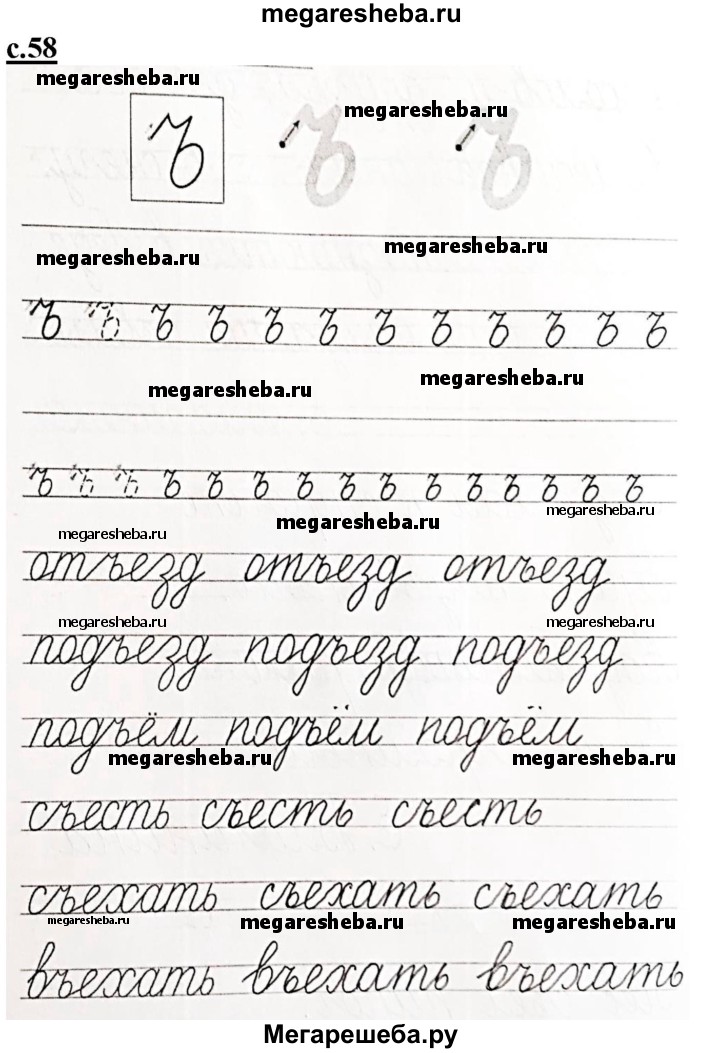 megaresheba.ru
с.58
megaresheba.ru
megaresheba.ru
ъ ъ ъ
megaresheba.ru
megaresheba.ru
ъ ъ ъ ъ ъ ъ ъ ъ ъ ъ ъ ъ
megaresheba.ru
megaresheba.ru
ъ ъ ъ ъ ъ ъ ъ ъ ъ ъ ъ ъ ъ ъ ъ
megaresheba.ru
megaresheba.ru
megaresheba.ru
отъезд отъезд отъезд
megaresheba.ru
megaresheba.ru
megaresheba.ru
подъезд подъезд подъезд
подъём подъём подъём
megaresheba.ru
megaresheba.ru
съесть съесть съесть
съехать съехать съехать
megaresheba.ru
megaresheba.ru
megaresheba.ru
въехать въехать въехать
Мегарешеба.ру